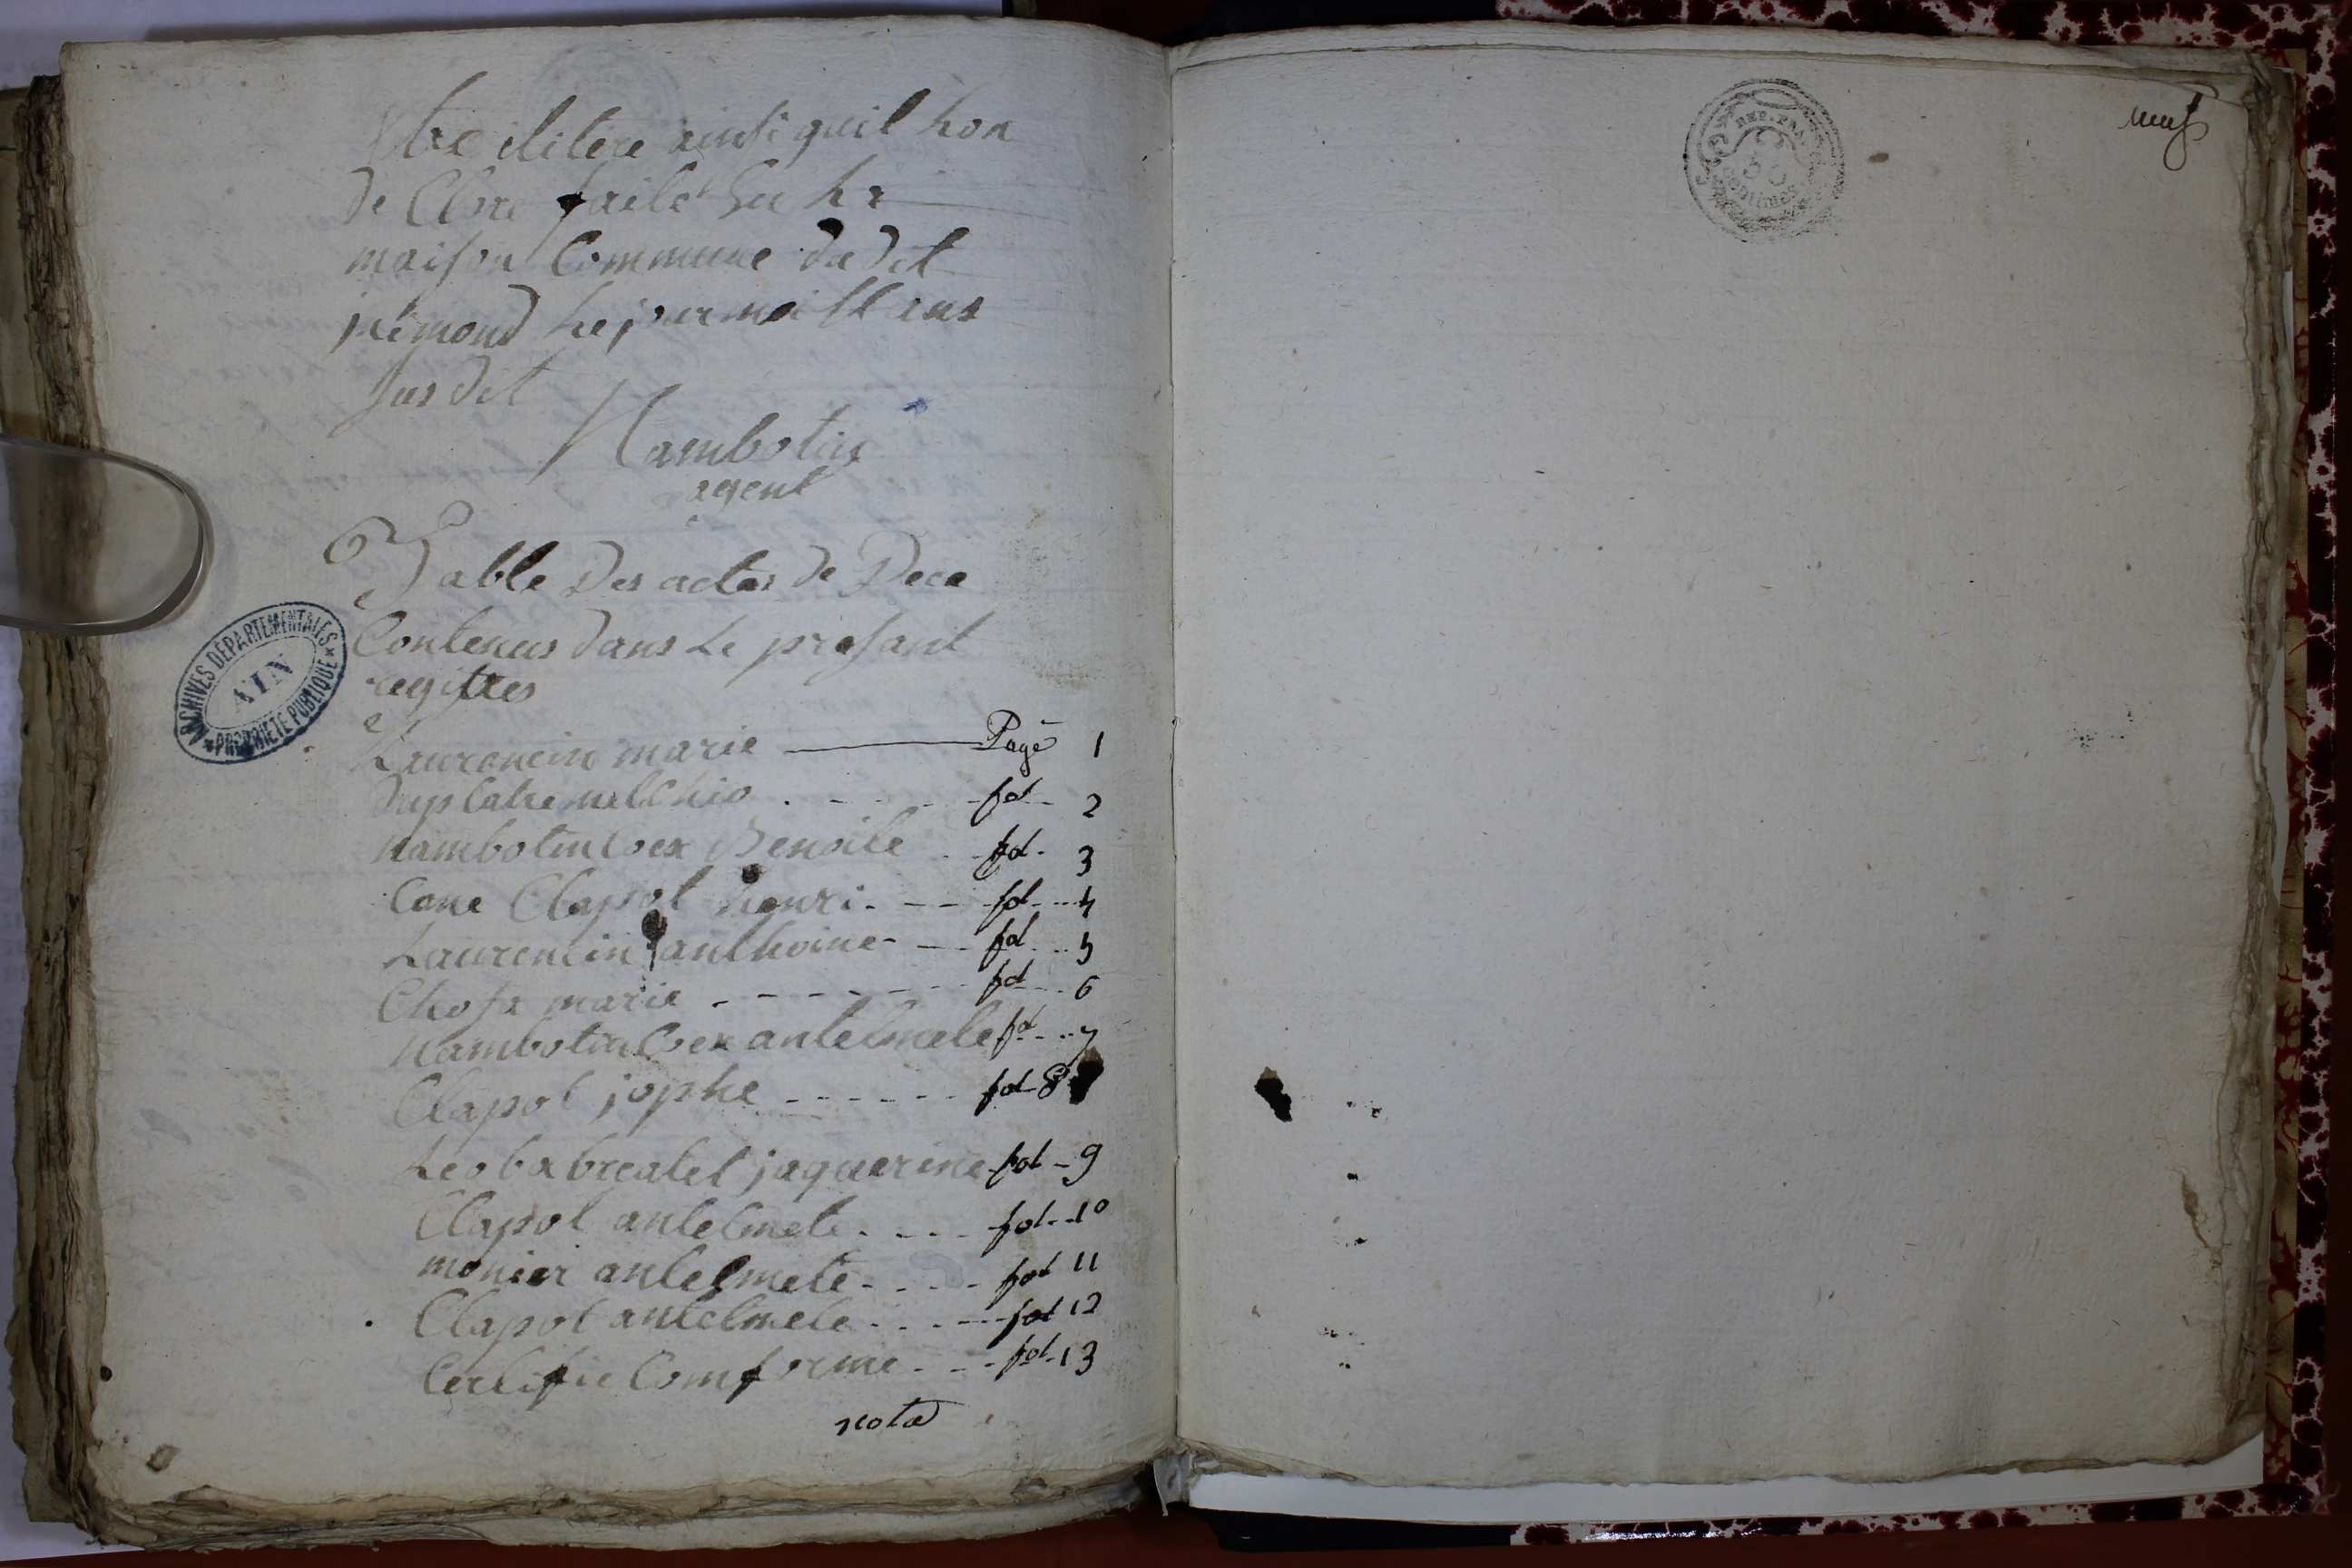 ainsi quil hon
de Clore faite En La
maison Commune dudit
prémond Le jour moi Et ans
susdit
Nambotin
agent
Table Des actes de Dece
Contenus dans Le presant
regitres
Laurencin marie Page 1
Duplatre melchio fol 2
Nambotin Coex Benoite fol 3
Cone Clapot henri fol 4
Laurencin anthoine fol 5
Chosa marie fol 6
Nambotin Coex antelmete fol 7
Clapot jophe fol 8
jaquerine fol 9
Clapot antelmete fol 10
monier antelmete fol 11
Clapot antelmete fol 12
Certifie Comforme fol 13
nota
ARCHIVES DÉPARTEMENTALES
AIN
PROPRIÉTÉ PUBLIQUE
REP. FRA.
50
centimes
neuf